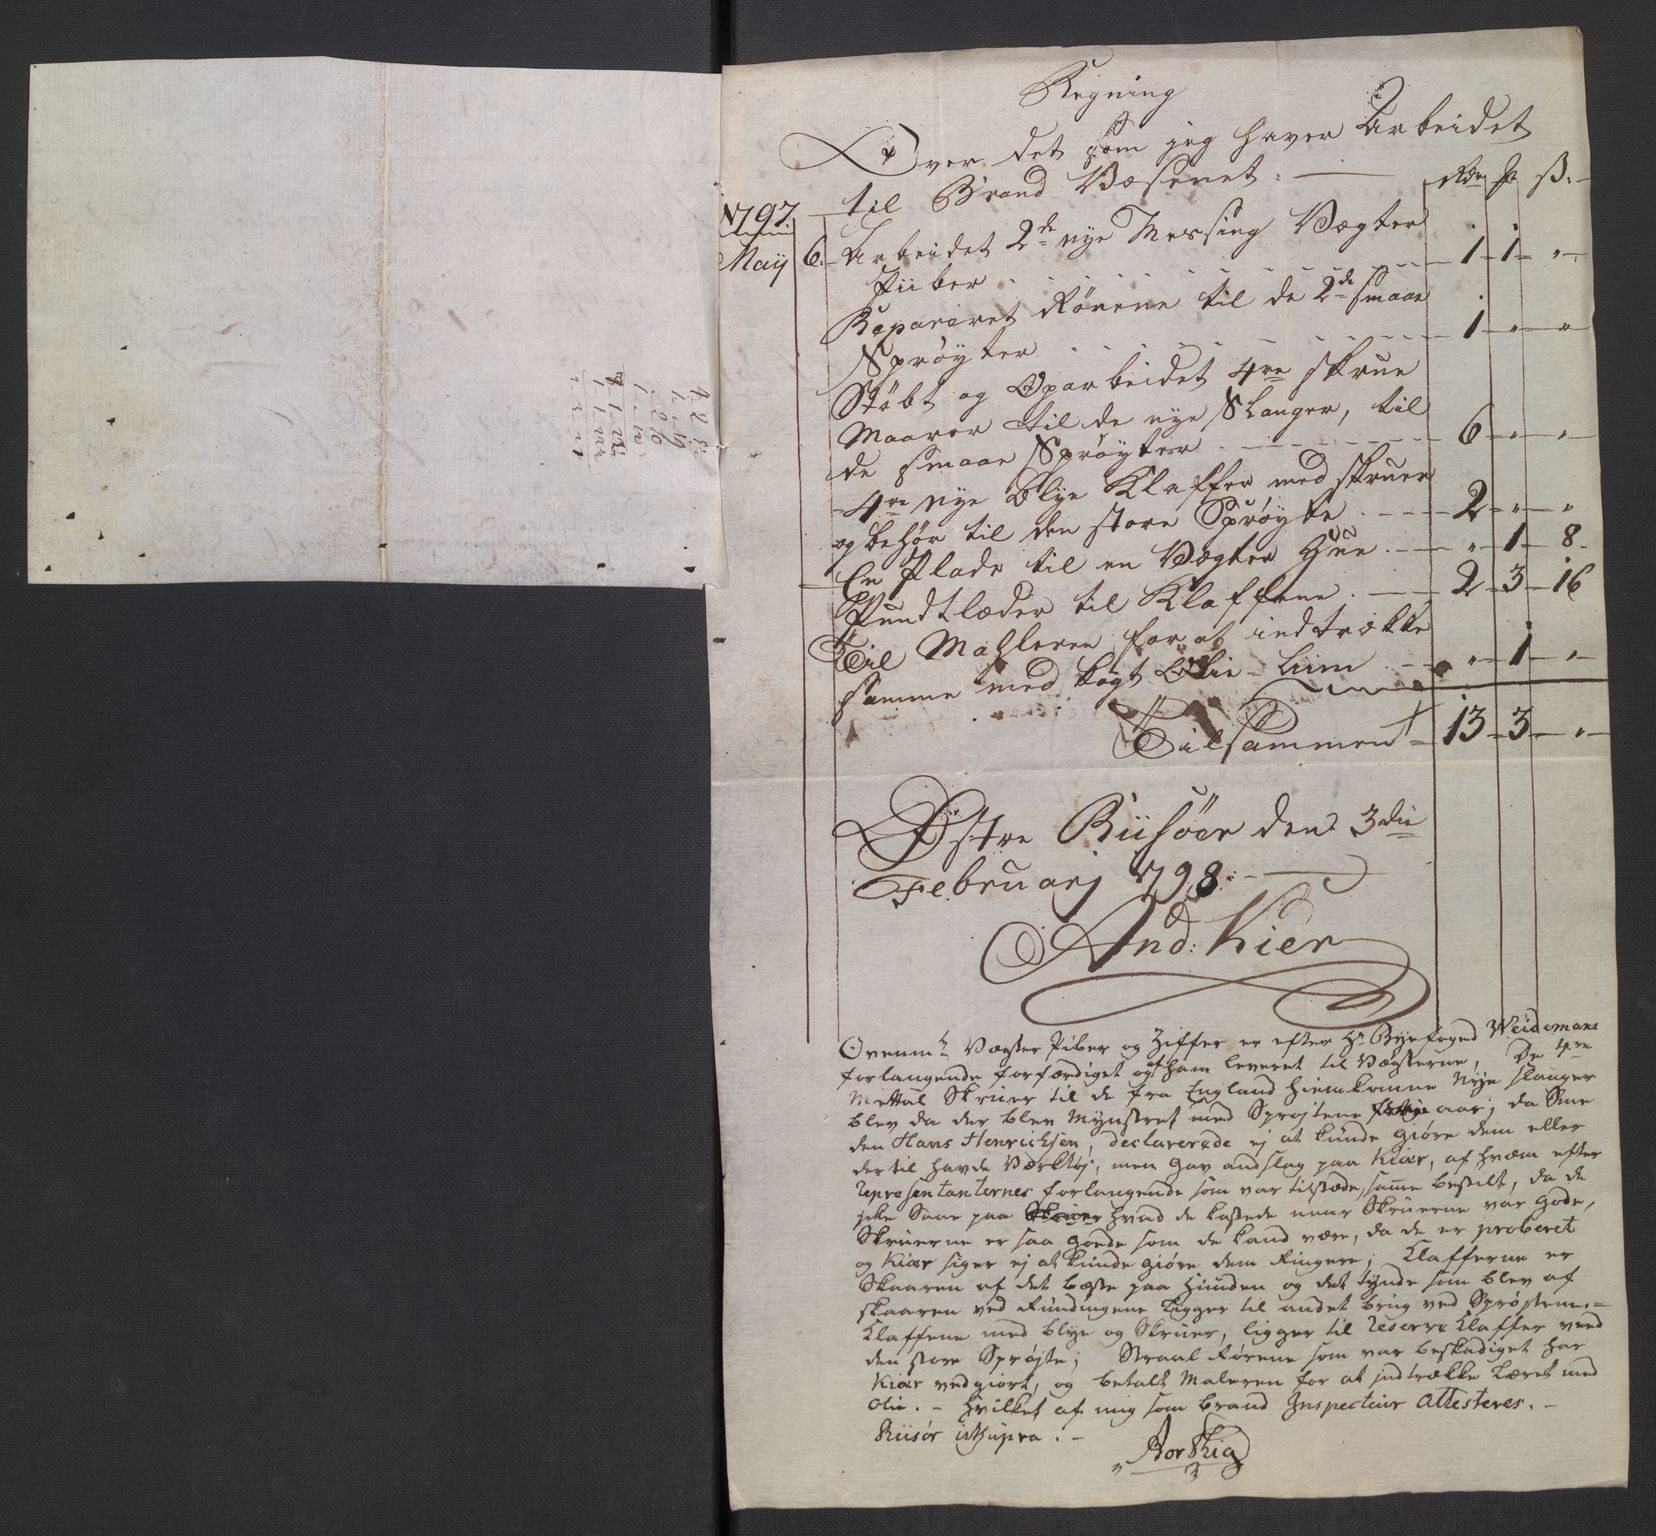 Regning
Over det som jeg haver Arbeidet
til Brand Væsenet. Rdr ß.
1797.
May 6. Arbeidet 2de nye Messing Vægter
Piiber 1 1 "
Repareret Rörene til de 2de smaae
Spröyter 1 " "
Stöbt og Oparbeidet 4re skrue
Maaror til de nye Slanger, til
de smaae Spröyter 6 " "
4re nye Blye Klaffer med skruer
og behör til den store Spröyte 2 " "
En Plade til en Vægter Hüe " 1 8
Pundtlæder til Klafferne 2 3 16
Til Mahleren for at indtrække
samme med kogt Olie-Liim " 1 "
Tilsammen 13 3 "
Östre Riisöer den 3die
Februarj 1798.
And: Kier
Ovenmte Vægter Piber og Ziffer er efter Hr Byefoged Weidemans
forlangende forfærdiget og af ham leveret til Vægterne, De 4re
Mettal Skruer til de fra England hiemkomne Nye slanger
blev da der blev Mynstret med Sprøjtene aar; da Sme
den Hans Henrichsen, declarerede ej at kunde giøre dem eller
dertil havde Værktøj, men gav anslag paa Kiær, af hvæm efter
Repræsentanternes forlangende som var tilstæde, samme bestilt, da de
jcke Saae paa hvad de kostede naar Skruerne var gode,
Skruerne er saa goede som de kand være, da de er proberet
og Kiær siger ej at kunde giøre dem Ringere; Klafferne er
Skaaren af det bæste paa Huuden og det tynde som blev af
skaaren ved Rundingene ligger til andet brug ved Sprøjterne.
Klaffene med blye og Skruer, ligger til Reserve Klaffer ved
den store Sprøjte; Straal Rørene som var beskadiget har
Kiær vedgiort, og betalt Maleren for at indtrække Læret med
Olie. - Hvilket af mig som brand Inspecteur Attesteres. -
Riisør ut supra. -